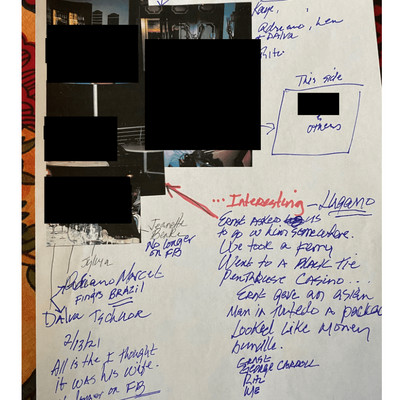 Kaye,
Adriano, Len
+ DALVA
Ritz
This side
&
others
... Interesting - Lugano
Ernst asked us
to go w/ him somewhere.
We took a ferry
Went to a Black Tie
Penthouse Casino...
Ernst gave an asian
Man in tuxedo a package
Looked Like Money
bundle.
Ernst
George Carroll
Ritz
We
Jennette
No longer
on FB
Sylvya
Adriano Marcet
Finits BRAZIL
Dalva Tschoor
2/3/21
All is the I thought
it was his wife.
longer on FB